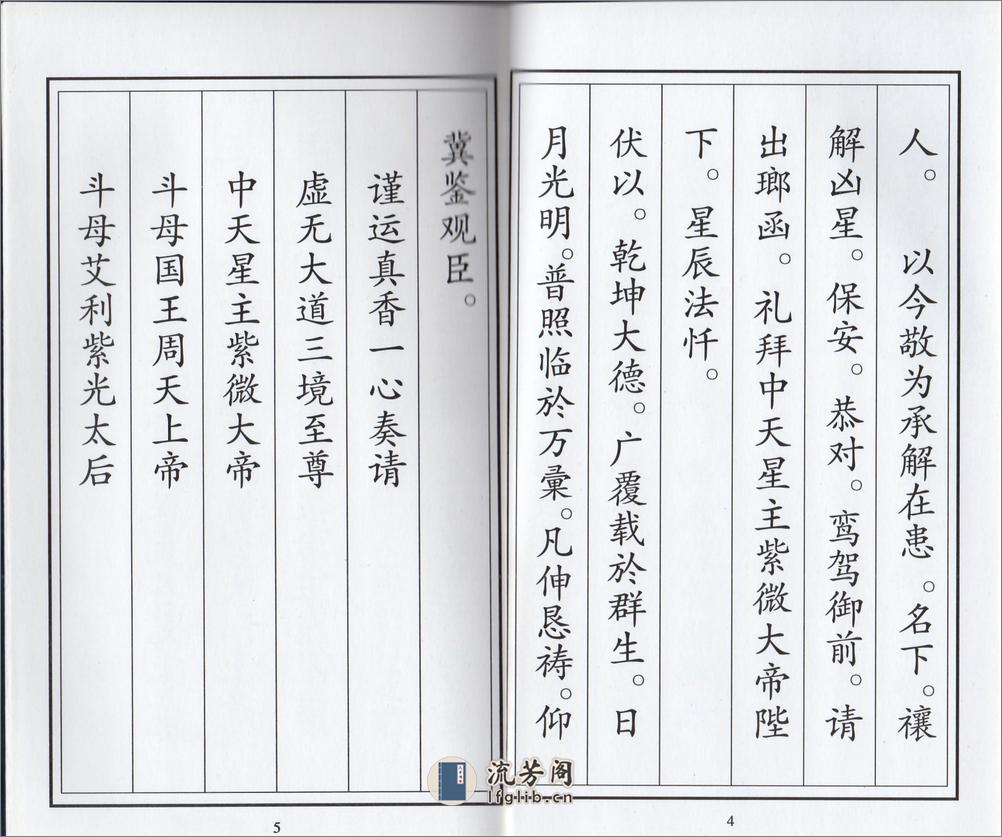 人。　以今敬为承解在患。名下。禳
解凶星。保安。恭对。鸾驾御前。请
出瑯函。礼拜中天星主紫微大帝陛
下。星辰法忏。
伏以。乾坤大德。广覆载於群生。日
月光明。普照临於万彙。凡伸恳祷。仰
4
冀鉴观臣。
谨运真香一心奏请
虚无大道三境至尊
中天星主紫微大帝
斗母国王周天上帝
斗母艾利紫光太后
5
流芳阁
lfglib.cn